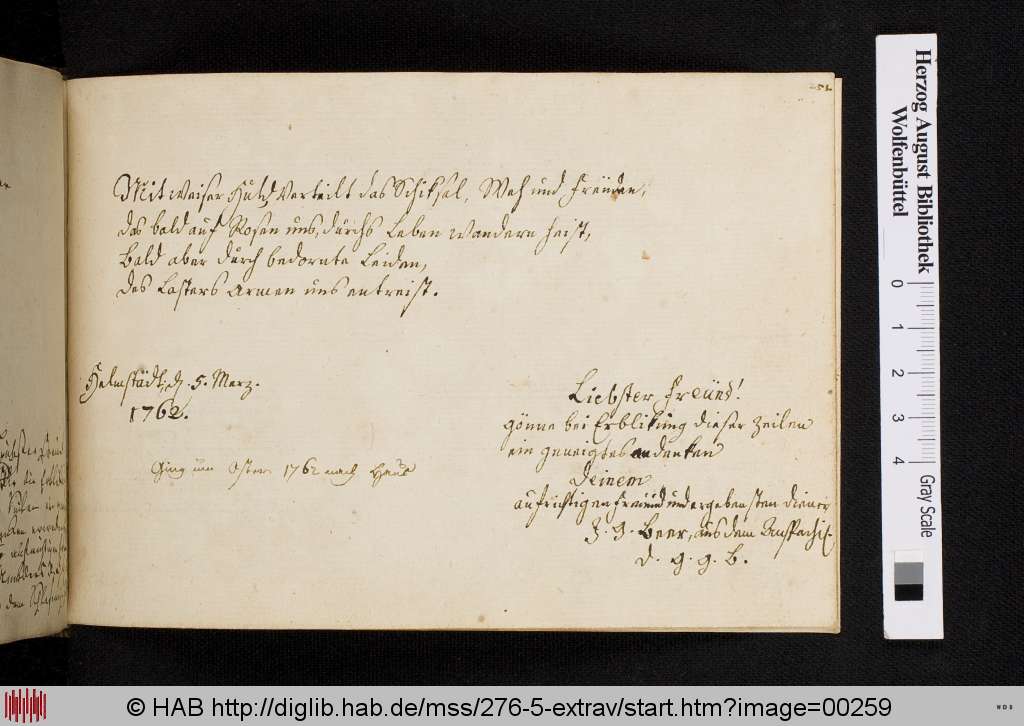 252
Mit weiser Huld verteilt das Schiksal, Weh und Freüden,
das bald auf Rosen uns, durchs Leben wandern heist,
Bald aber durch bedornte Leiden,
des Lasters Armen uns entreist.
Helmstädt, d. 5. Merz.
1762.
Ging um Ostern 1762 nach Haus
Liebster Freünd!
gönne bei Erblikung dieser Zeilen
ein geneigtes andenken
Deinem
aufrichtigen Freünd und ergebensten Diener
J. G. Beer, aus dem Anspachis.
d. G. G. B.
Herzog August Bibliothek
Wolfenbüttel
0
1
2
3
4
Gray Scale
© HAB http://diglib.hab.de/mss/276-5-extrav/start.htm?image=00259
WDB